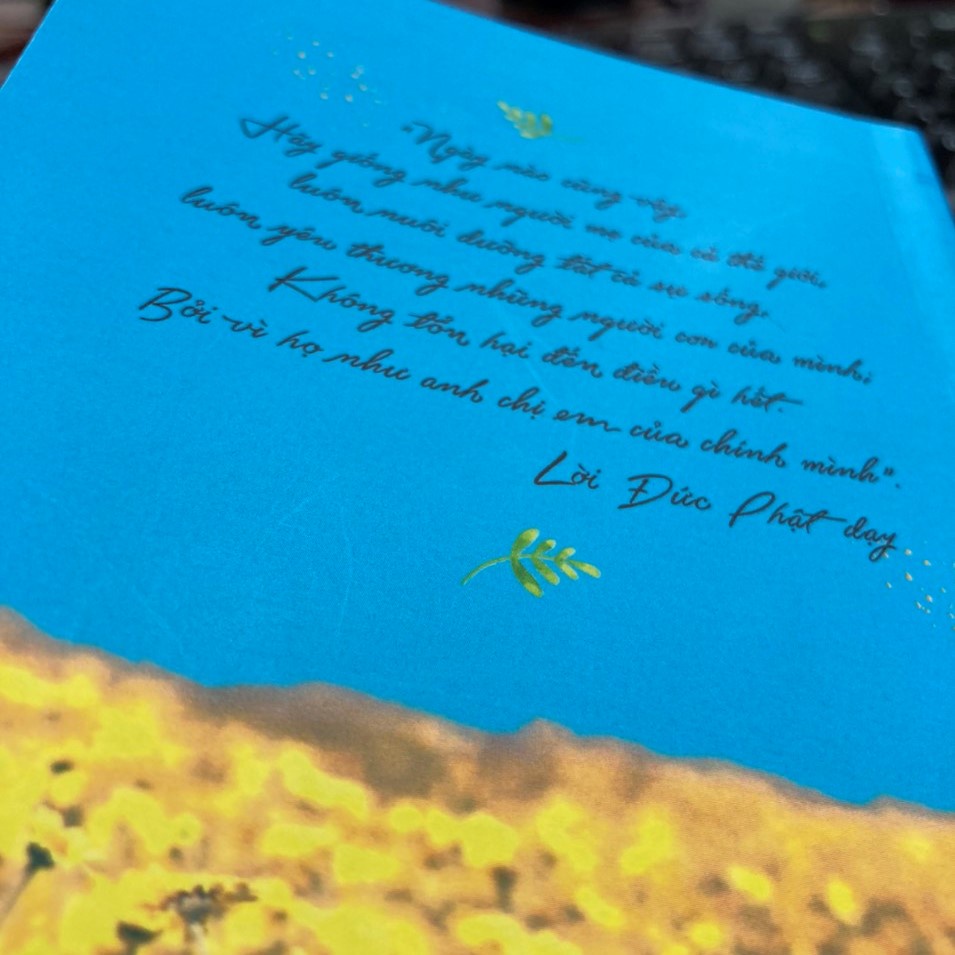 "Ngày nào cũng vậy,
Hãy giống như người mẹ của cả thế giới,
luôn nuôi dưỡng tất cả sự sống,
luôn yêu thương những người con của mình;
Không tổn hại đến điều gì hết.
Bởi vì họ như anh chị em của chính mình".
Lời Đức Phật dạy